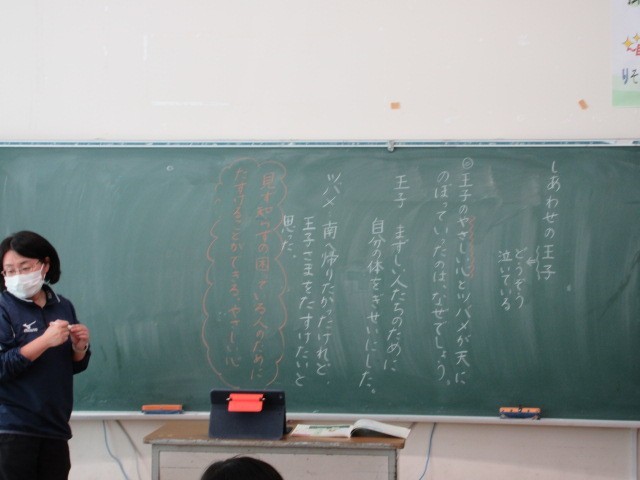 しあわせの王子
どうぞう
泣いている
王子のやさしい心とツバメが天に
のぼっていったのは、なぜでしょう。
王子 まずしい人たちのために
自分の体をぎせいにした。
ツバメ 南へ帰りたかったけれど、
王子さまをたすけたいと
思った。
見ず知らずの困っている人のために
たすけることができる、やさしい心